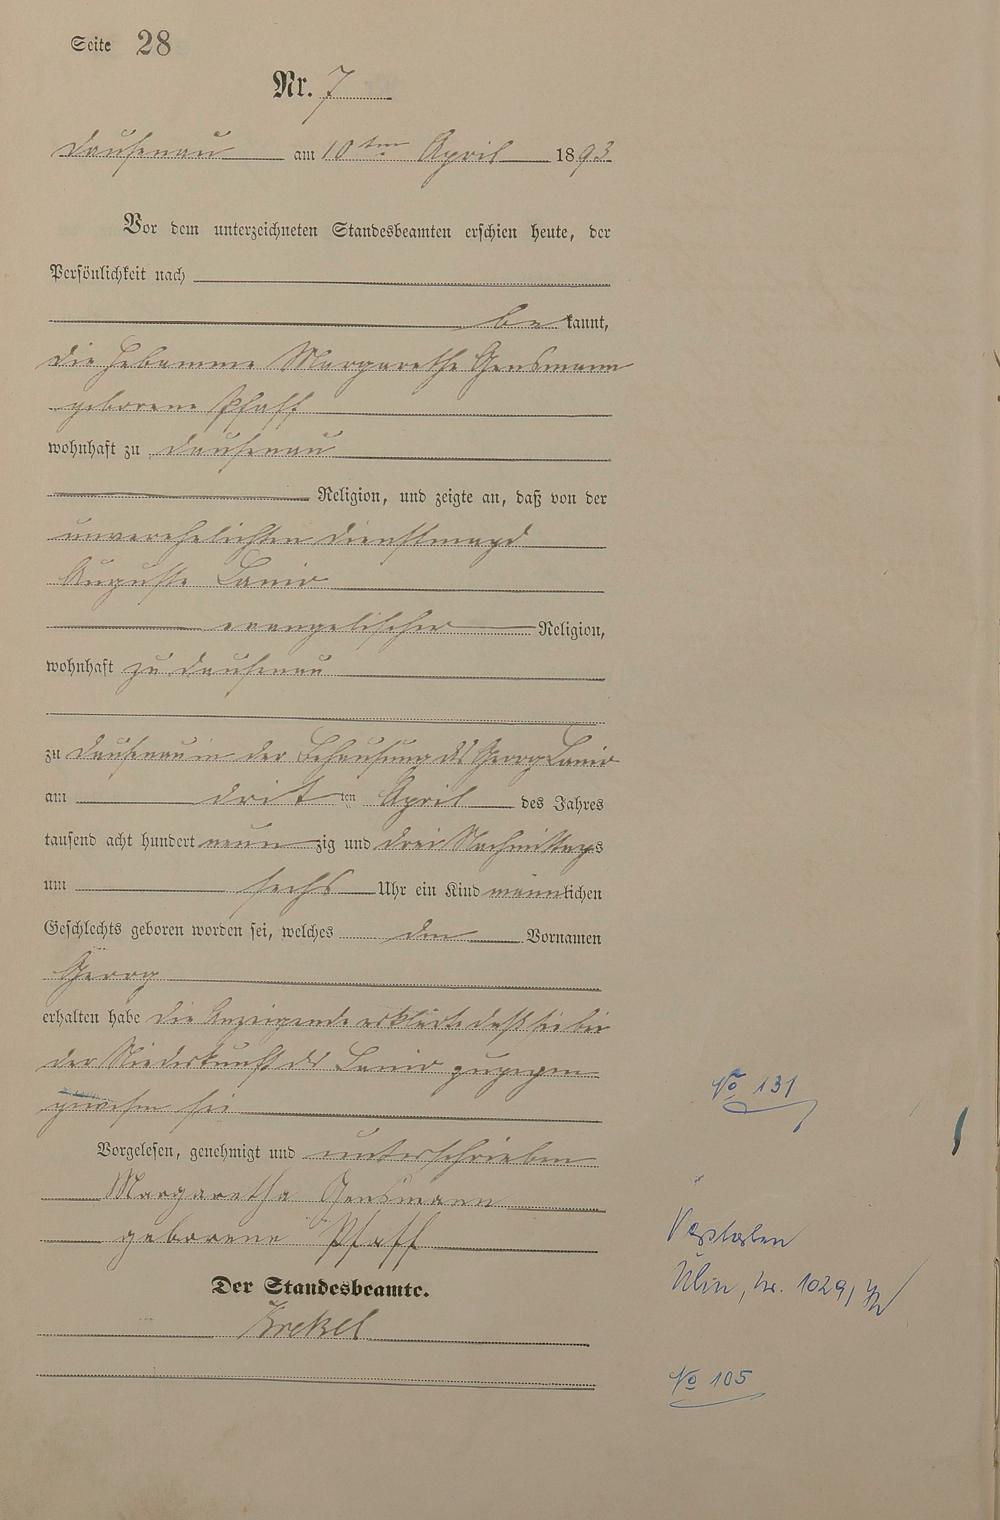 Seite 28
Nr. 7
Dausenau am 10ten April 1893
Vor dem unterzeichneten Standesbeamten erschien heute, der
Persönlichkeit nach
bekannt,
die Hebamme Margarethe Gensmann
geborene Pfaff
wohnhaft zu Dausenau
Religion, und zeigte an, daß von der
unverehelichten Dienstmagd
Auguste Lanio
evangelischer Religion,
wohnhaft zu Dausenau
zu Dausenau in der Behausung des Georg Lanio
am dritten April des Jahres
tausend acht hundert neunzig und drei Nachmittags
um sechs Uhr ein Kind männlichen
Geschlechts geboren worden sei, welches den Vornamen
Georg
erhalten habe die Anzeigende erklärte daß sie bei
der Niederkunft der Lanio zugegen
gewesen sei
Vorgelesen, genehmigt und unterschrieben
Margaretha Gensmann
geborene Pfaff
Der Standesbeamte.
Krekel
No 131
Nr. 1029,
No 105